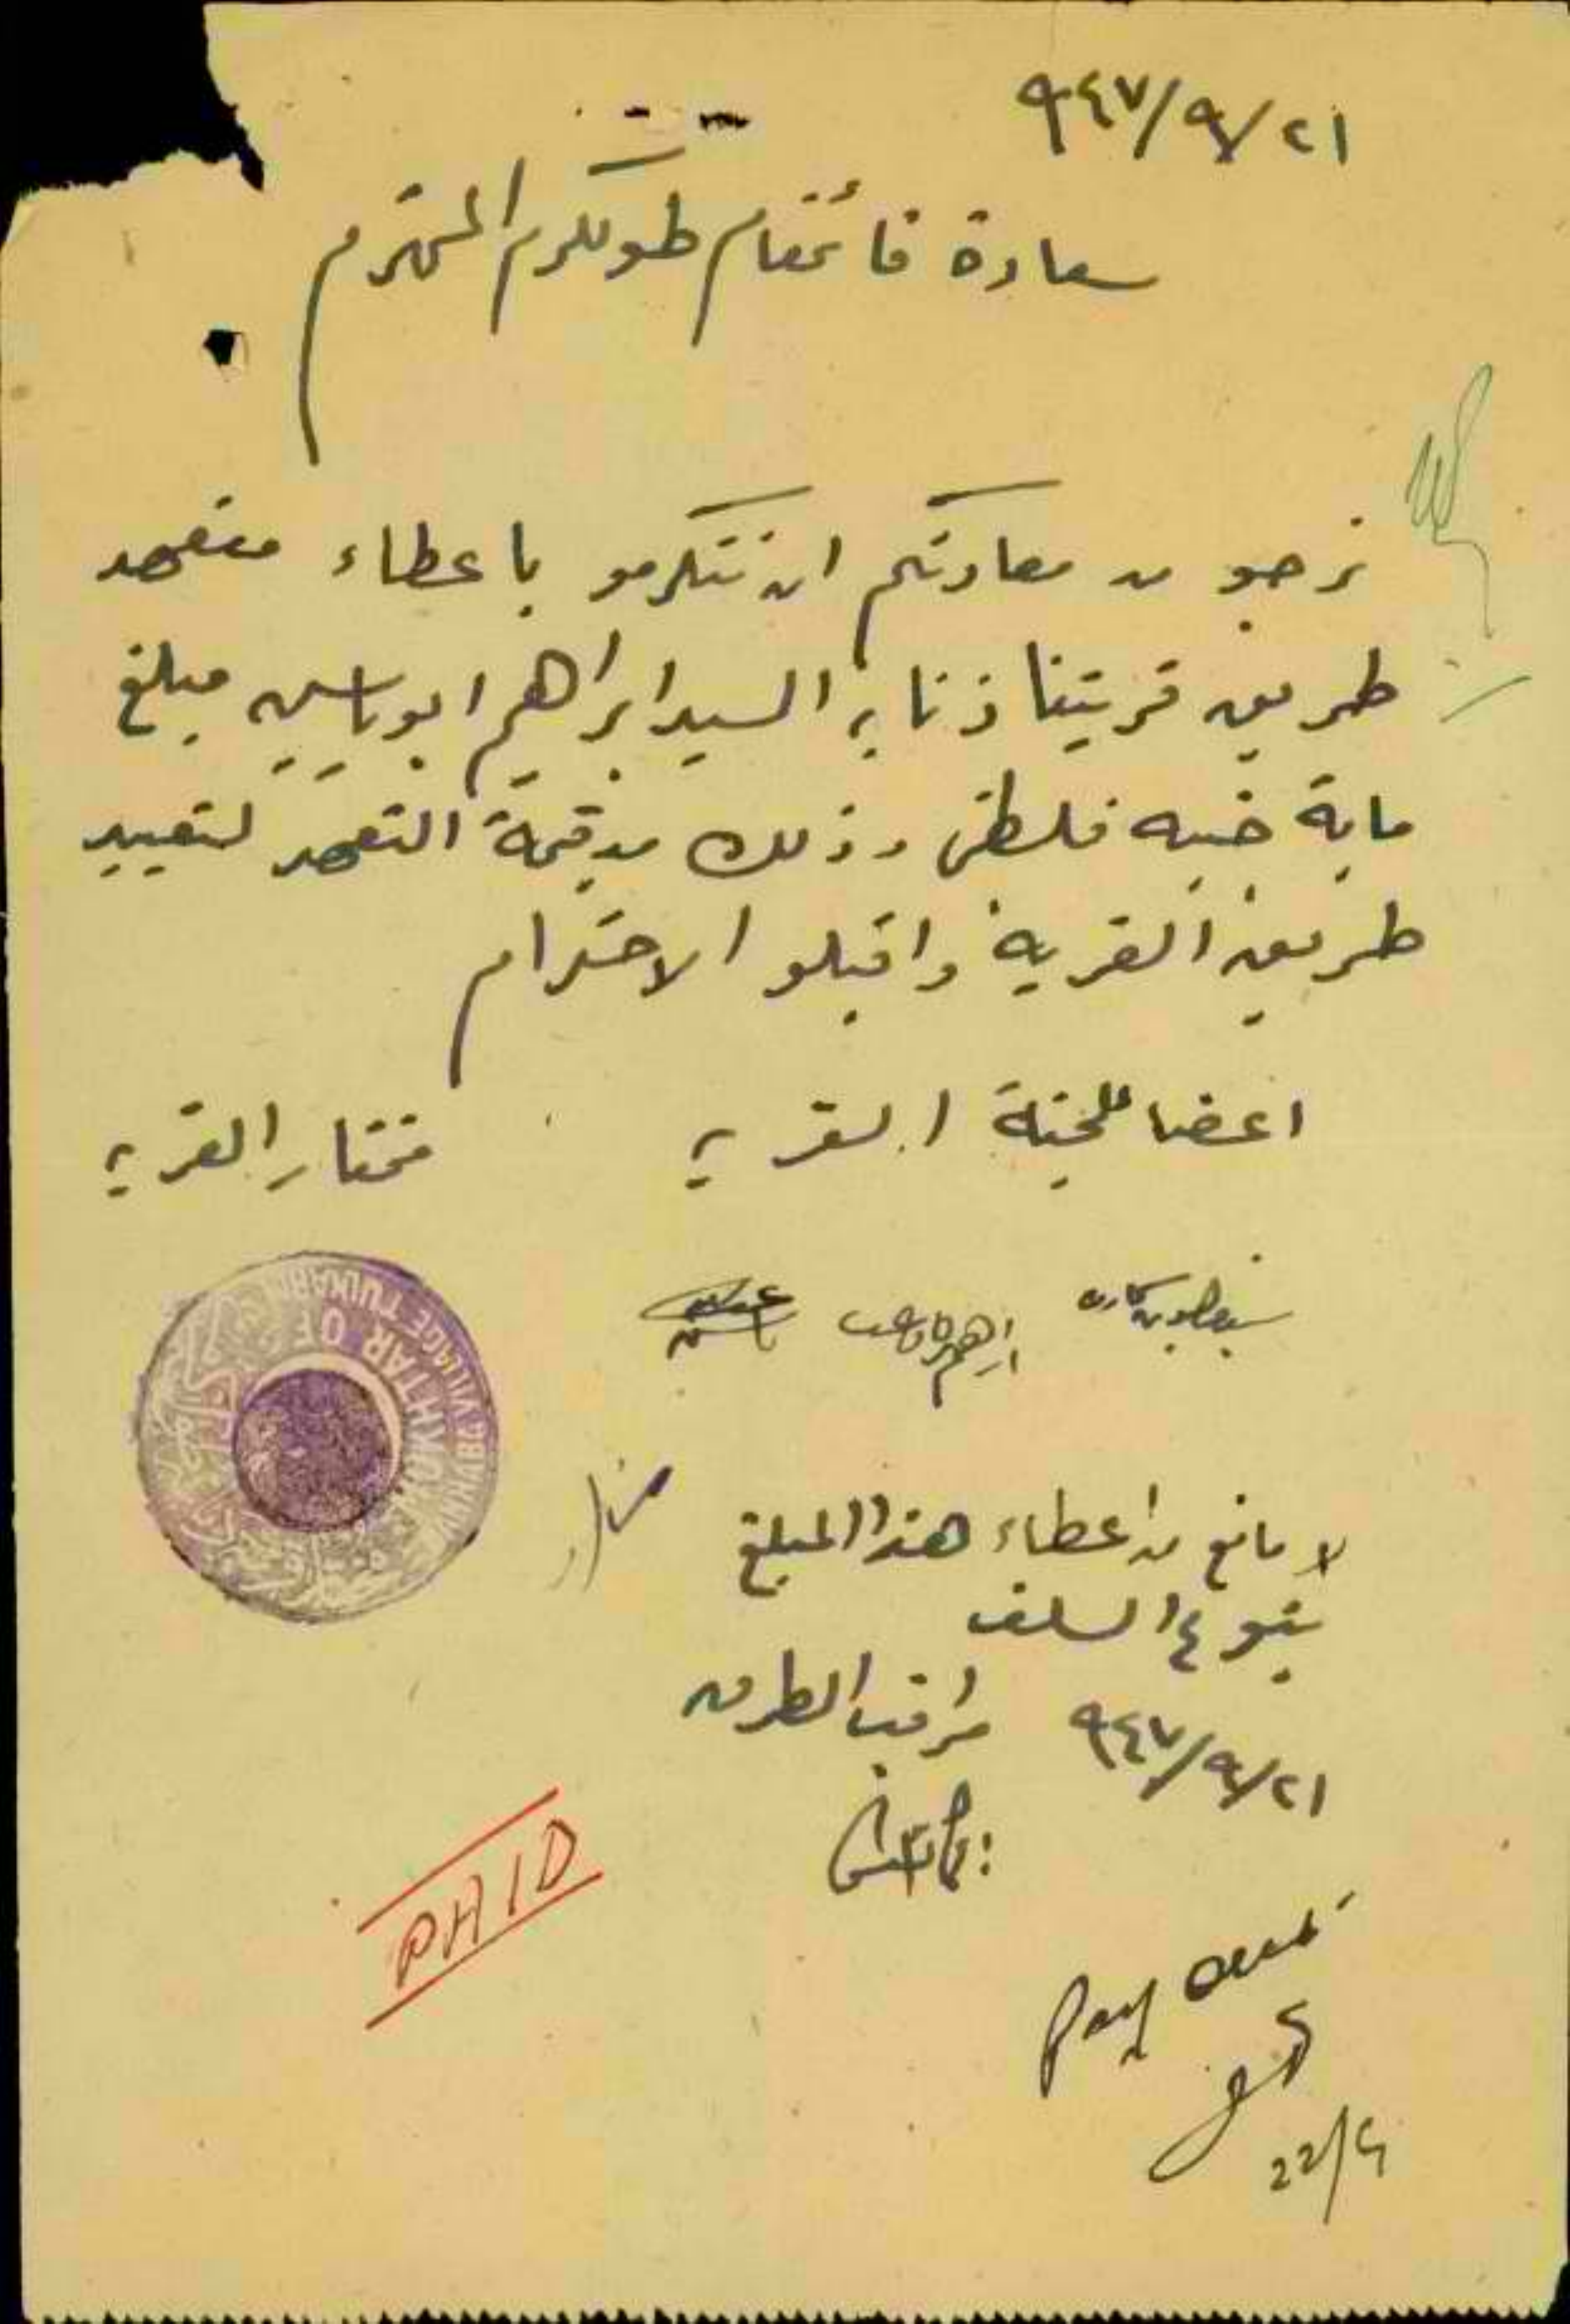 ٩٤٧/٩/٢١
سعادة قائمقام طولكرم المحترم
نرجو من سعادتكم ان تتكرمو باعطاء متعهد
طريق قريتنا ذنابه السيد ابراهيم ابو ياسين مبلغ
ماية جنيه فلسطني وذلك من قيمة التعهد لتعبيد
طريق القرية واقبلو الاحترام
اعضا لجنة القريه
مختار القريه
MUKHTAR OF
DENNABA VILLAGE TULKARM
لا مانع من اعطاء هذا المبلغ
بنوع السلف
٩٤٧/٩/٢١ مراقب الطرق
PAID
Pay
22/9